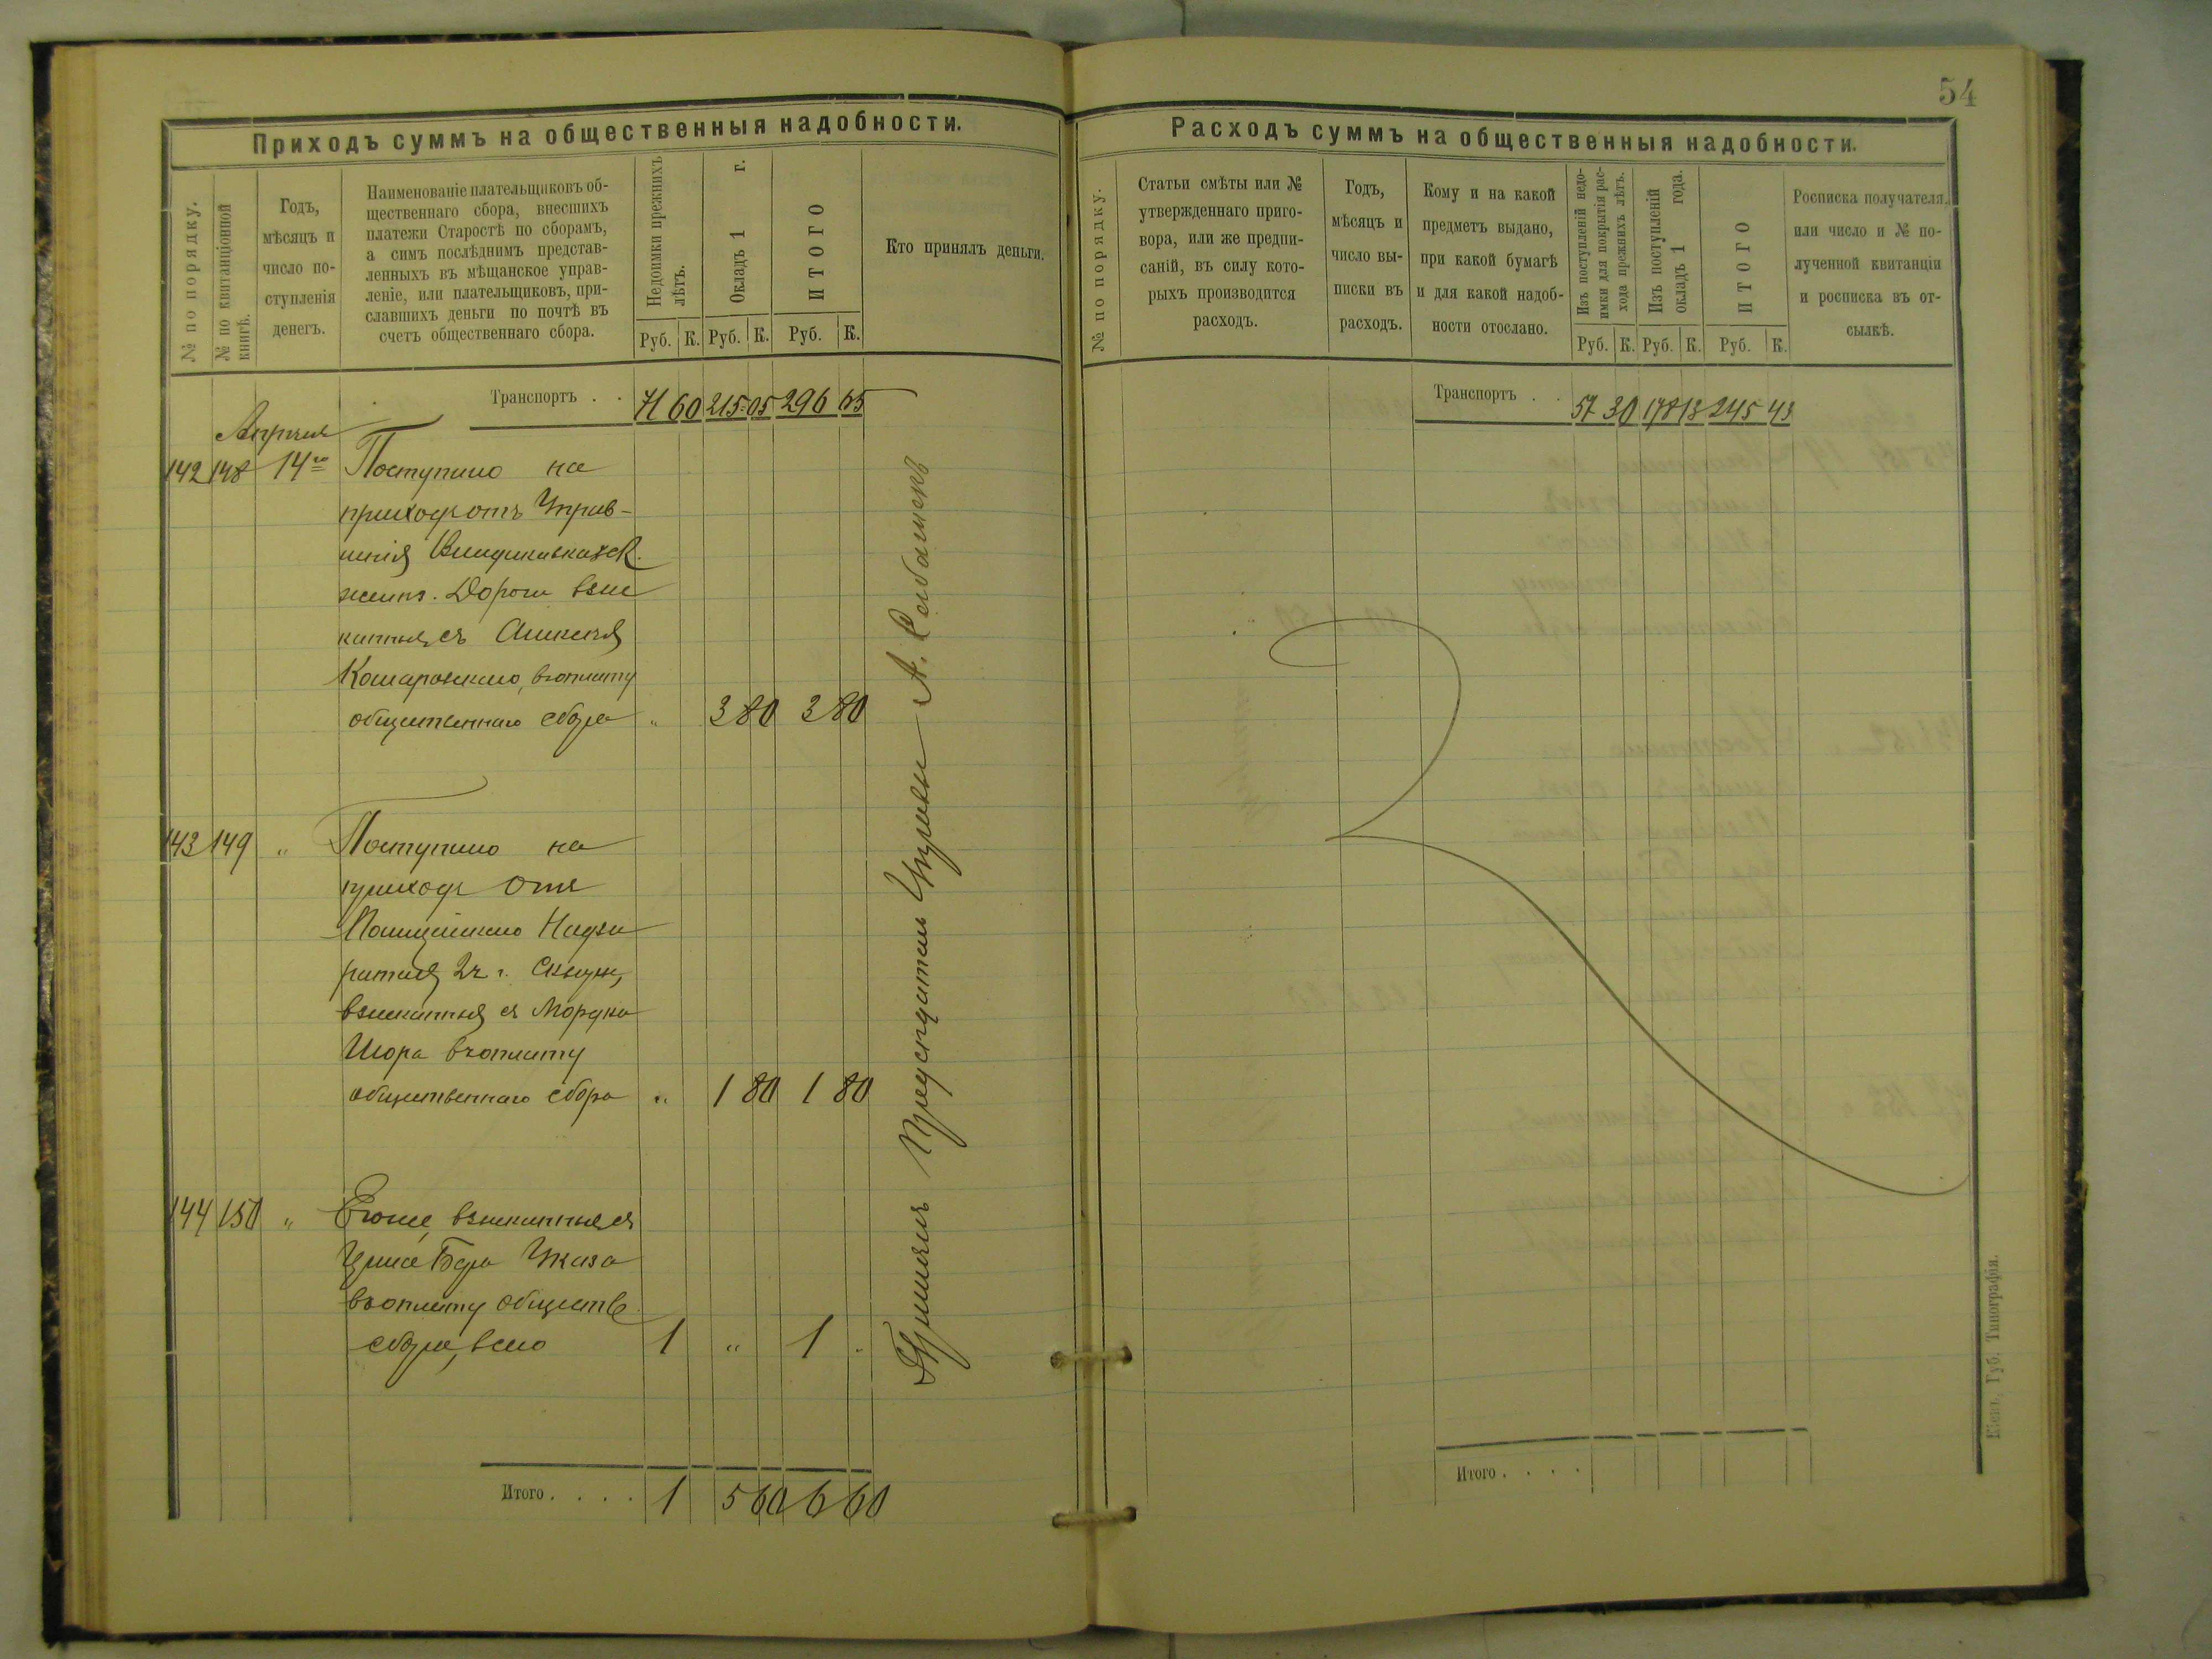 54
Приходъ суммъ на общественныя надобности.
№ по порядку.
№ по квитанціонной
книгѣ.
Годъ,
мѣсяцъ и
число по-
ступленія
денегъ.
Наименованіе плательщиковъ об-
щественнаго сбора, внесшихъ
платежи Старостѣ по сборамъ,
а симъ послѣднимъ представ-
ленныхъ въ мѣщанское управ-
леніе, или плательщиковъ, при-
славшихъ деньги по почтѣ въ
счетъ общественнаго сбора.
Недоимки прежнихъ
лѣтъ.
Окладъ 1 г.
ИТОГО
Руб. К. Руб. К. Руб. К.
Кто принялъ деньги.
Транспортъ . . 71 60 215 05 296 65
Апрѣля
142 148 14го Поступило на
приходъ отъ Управ-
ленія Владикавказск.
желѣз. Дороги взыс
канныя съ Алексея
Комаровскаго, въ оплату
общественнаго сбора " 3 80 3 80
143 149 " Поступило на
приходъ отъ
Полицейскаго Надзи
рателя 2 ч. г.
взысканныя съ Мордка
Шора въ оплату
общественнаго сбора " 1 80 1 80
144 150 " Егоже, взысканныя съ
въ оплату обществ.
сбора, всего 1 " 1 "
Итого . . . . 1 5 60 6 60
Принялъ Предсѣдатель Управы А.
Расходъ суммъ на общественныя надобности.
№ по порядку.
Статьи смѣты или №
утвержденнаго приго-
вора, или же предпи-
саній, въ силу кото-
рыхъ производится
расходъ.
Годъ,
мѣсяцъ и
число вы-
писки въ
расходъ.
Кому и на какой
предметъ выдано,
при какой бумагѣ
и для какой надоб-
ности отослано.
Изъ поступленій недо-
имки для покрытія рас-
хода прежнихъ лѣтъ.
Изъ поступленій
окладъ 1 года.
ИТОГО
Руб. К. Руб. К. Руб. К.
Росписка получателя,
или число и № по-
лученной квитанціи
и росписка въ от-
сылкѣ.
Транспортъ . . 57 30 178 13 245 43
Итого . . . .
Кіев. Губ. Типографія.